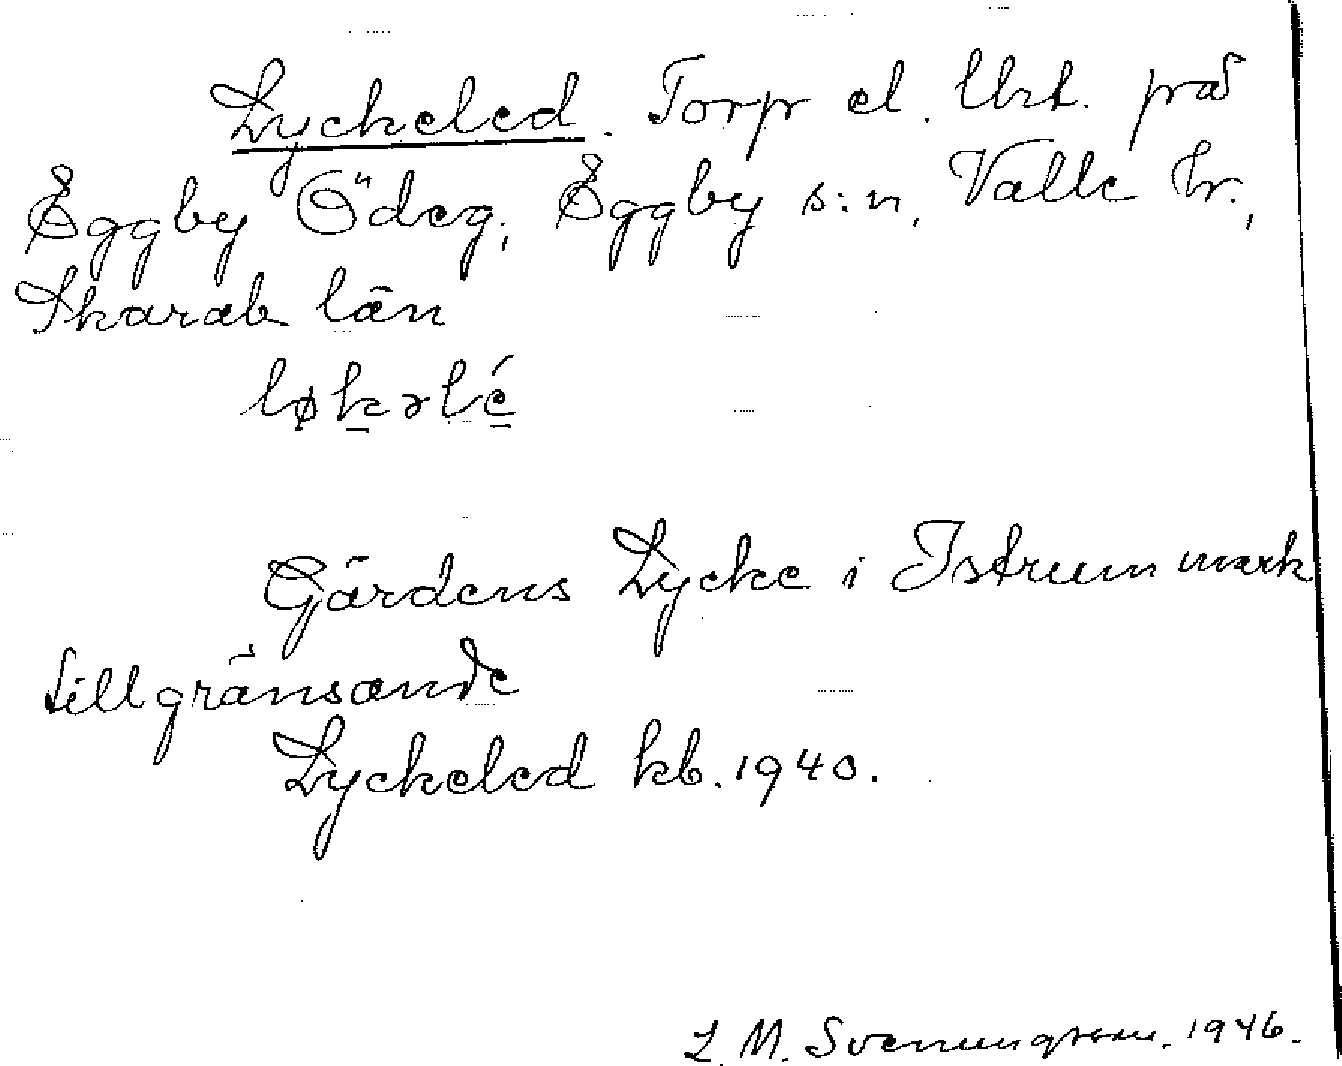 Lyckeled. Torp el. lht. på
Eggby Ödeg., Eggby s:n, Valle hr.,
Skarab. län
løkəlé
Gärdens Lycke i Istrum mark
tillgränsande
Lyckeled kb. 1940.
L. M. Svenungsson. 1946.